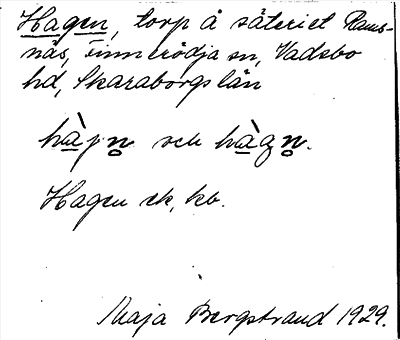 Hagen, torp å säteriet Rams-
näs, Finnerödja sn, Vadsbo
hd, Skaraborgs län
hàpn̥ och hàgn̥.
Hagen ek. kb.
Maja Bergstrand 1929.